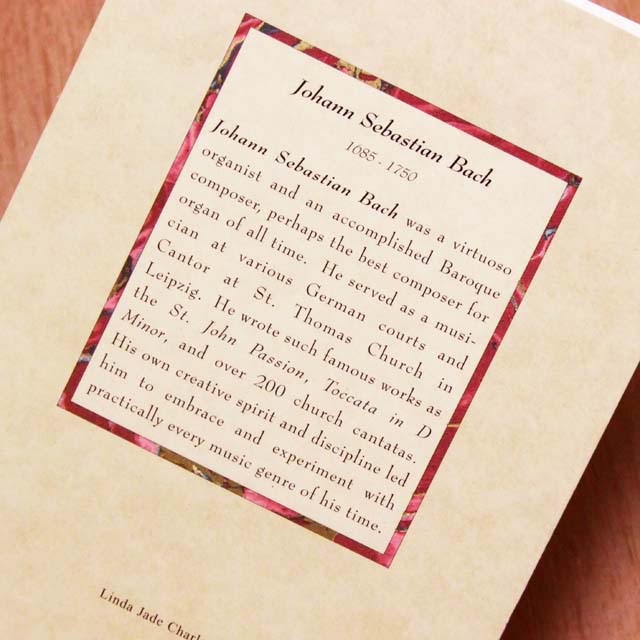 Johann Sebastian Bach
1685 - 1750
Johann Sebastian Bach was a virtuoso
organist and an accomplished Baroque
composer, perhaps the best composer for
organ of all time. He served as a musi-
cian at various German courts and
Cantor at St. Thomas Church in
Leipzig. He wrote such famous works as
the St. John Passion, Toccata in D
Minor, and over 200 church cantatas.
His own creative spirit and discipline led
him to embrace and experiment with
practically every music genre of his time.
Linda Jade